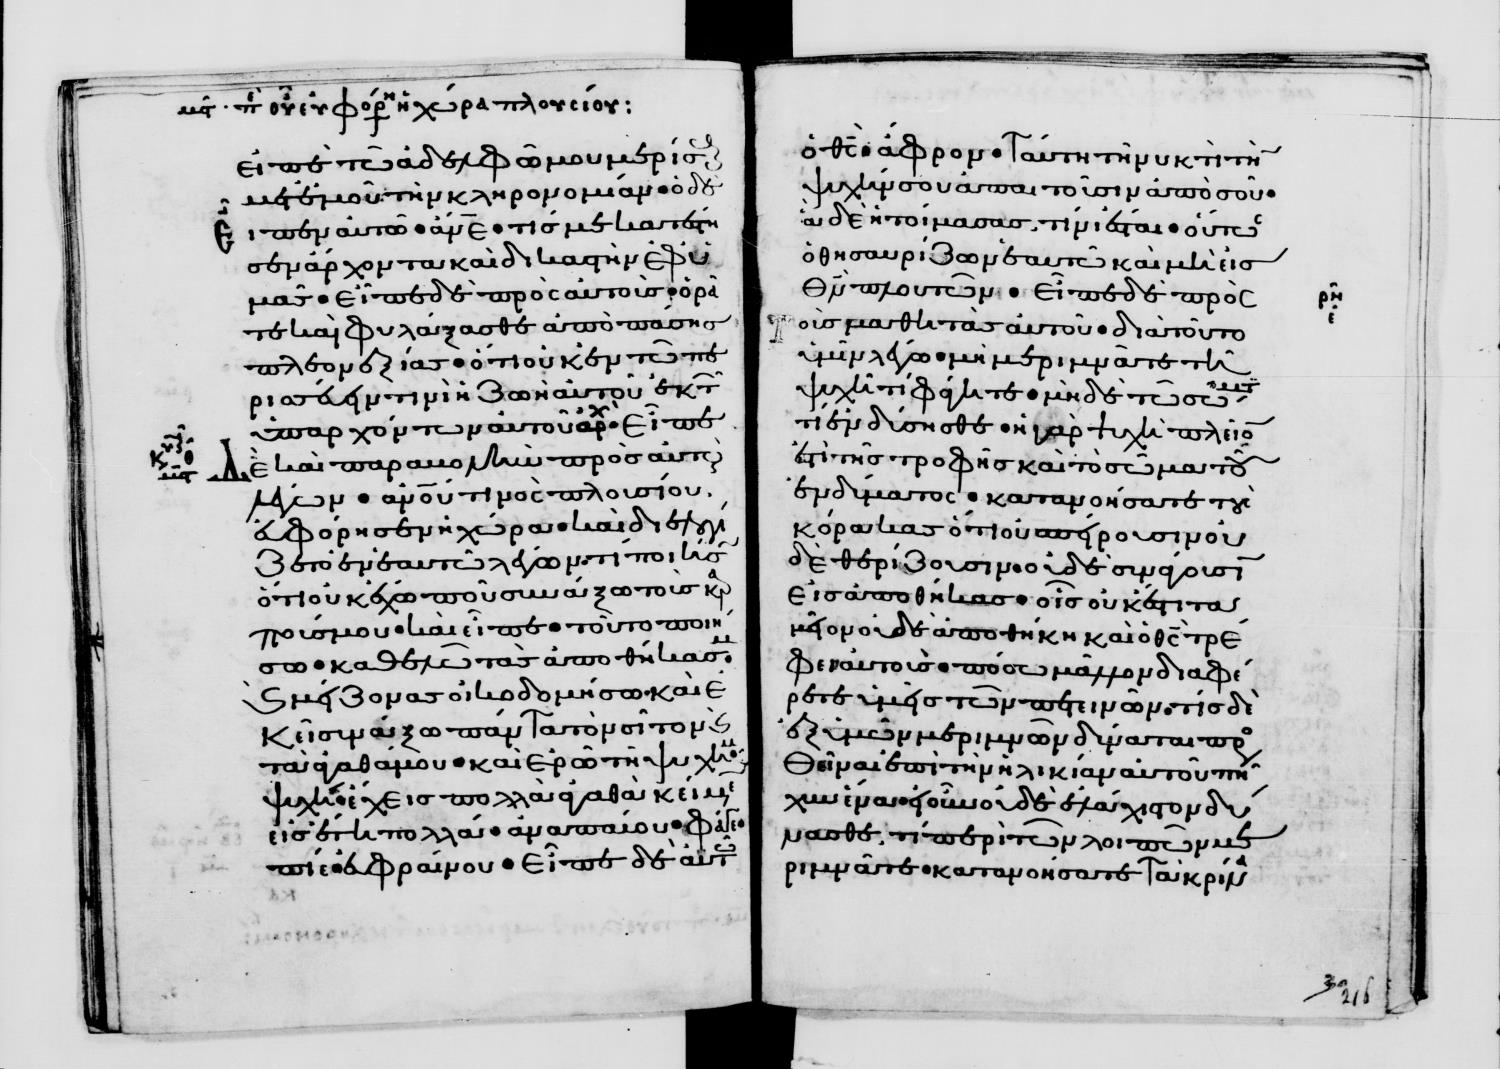 μς · πε οὗ εὐφόρη ἡ χώρα πλουσίου:
εἰπὲ τῶ ἀδελφῶ μου μερίσ
με ἐμοῦ τὴν κληρονομίαν· ὁ δὲ
ιπεν αὐτῶ· ἄνε· τίς με κατέστη
σεν ἄρχοντα καὶ δικαστὴν ἐφ ὑ
μᾶς· εἶπε δὲ πρὸς αὐτοὺς· ὁρᾶ
τε καὶ φυλάξασθε ἀπὸ πάσης
πλεονεξίας· ὅτι οὐκ ἐν τῶ πε
ρισσεύειν τινὶ ἡ ζωὴ αὐτοῦ ἐκ τ
ὑπαρχόντων αὐτοῦ· εἶπε
δὲ καὶ παραβολὴν πρὸς αὐτ
λέγων· ἀνου τινὸς πλουσίου
εὐφόρησεν ἡ χώρα· καὶ διελογί
ζετο ἐν ἑαυτῶ λέγων· τί ποιήσ
ὅτι οὐκ ἔχω ποῦ συνάξω τοὺς καρ
ποὺς μου· καὶ εἶπε· τοῦτο ποιή
σω· καθελῶ τὰς ἀποθήκας μ
ς μείζονας οἰκοδομήσω· καὶ ἐ
κεῖ συνάξω πάντα τὸν σῖτον ς
τὰ ἀγαθά μου· καὶ ἐρῶ τῆ ψυχῆ μ
ψυχὴ ἔχεις πολλὰ ἀγαθὰ κείμε
εἰς ἔτη πολλά· ἀναπαύου· φάγε·
πίε· εὐφραίνου· εἶπε δὲ αὐτῶ
ὁ θς· ἄφρον· ταύτη τῆ νυκτὶ τὴ
ψυχήν σου ἀπαιτοῦσιν ἀπὸ σοῦ·
ἃ δὲ ἡτοίμασας, τίνι ἔσται· οὕτως
ὁ θησαυρίζων ἑαυτῶ καὶ μὴ εἰς
θν πλουτῶν· εἶπε δὲ πρὸς
τοὺς μαθητὰς αὐτοῦ· διὰ τοῦτο
ὑμῖν λέγω· μὴ μεριμνᾶτε τῆ
ψυχῆ τί φάγητε· μηδὲ τῶ σώματ
τί ἐνδύσησθε· ἡ γὰρ ψυχὴ πλεῖο
ἐστὶ τῆς τροφῆς καὶ τὸ σῶμα τοῦ
ἐνδύματος· κατανοήσατε τοὺ
κόρακας ὅτι οὐ σπείρουσιν οὐ
δὲ θερίζουσιν· οὐδὲ συνάγουσι
εἰς ἀποθήκας· οἷς οὐκ ἔστι τα
μεῖον οὐδὲ ἀποθήκη καὶ ὁ θς τρέ
φει αὐτούς· πόσω μᾶλλον διαφέ
ρετε ὑμεῖς τῶν πετεινῶν· τίς δὲ
ἐξ ὑμῶν μεριμνῶν δύναται προ
θεῖναι ἐπὶ τὴν ἡλικίαν αὐτοῦ πῆ
χυν ἕνα· εἰ οὖν οὐδὲ ἐλάχιστον δύ
νασθε, τί περὶ τῶν λοιπῶν με
ριμνᾶτε· κατανοήσατε τὰ κρίνα
216